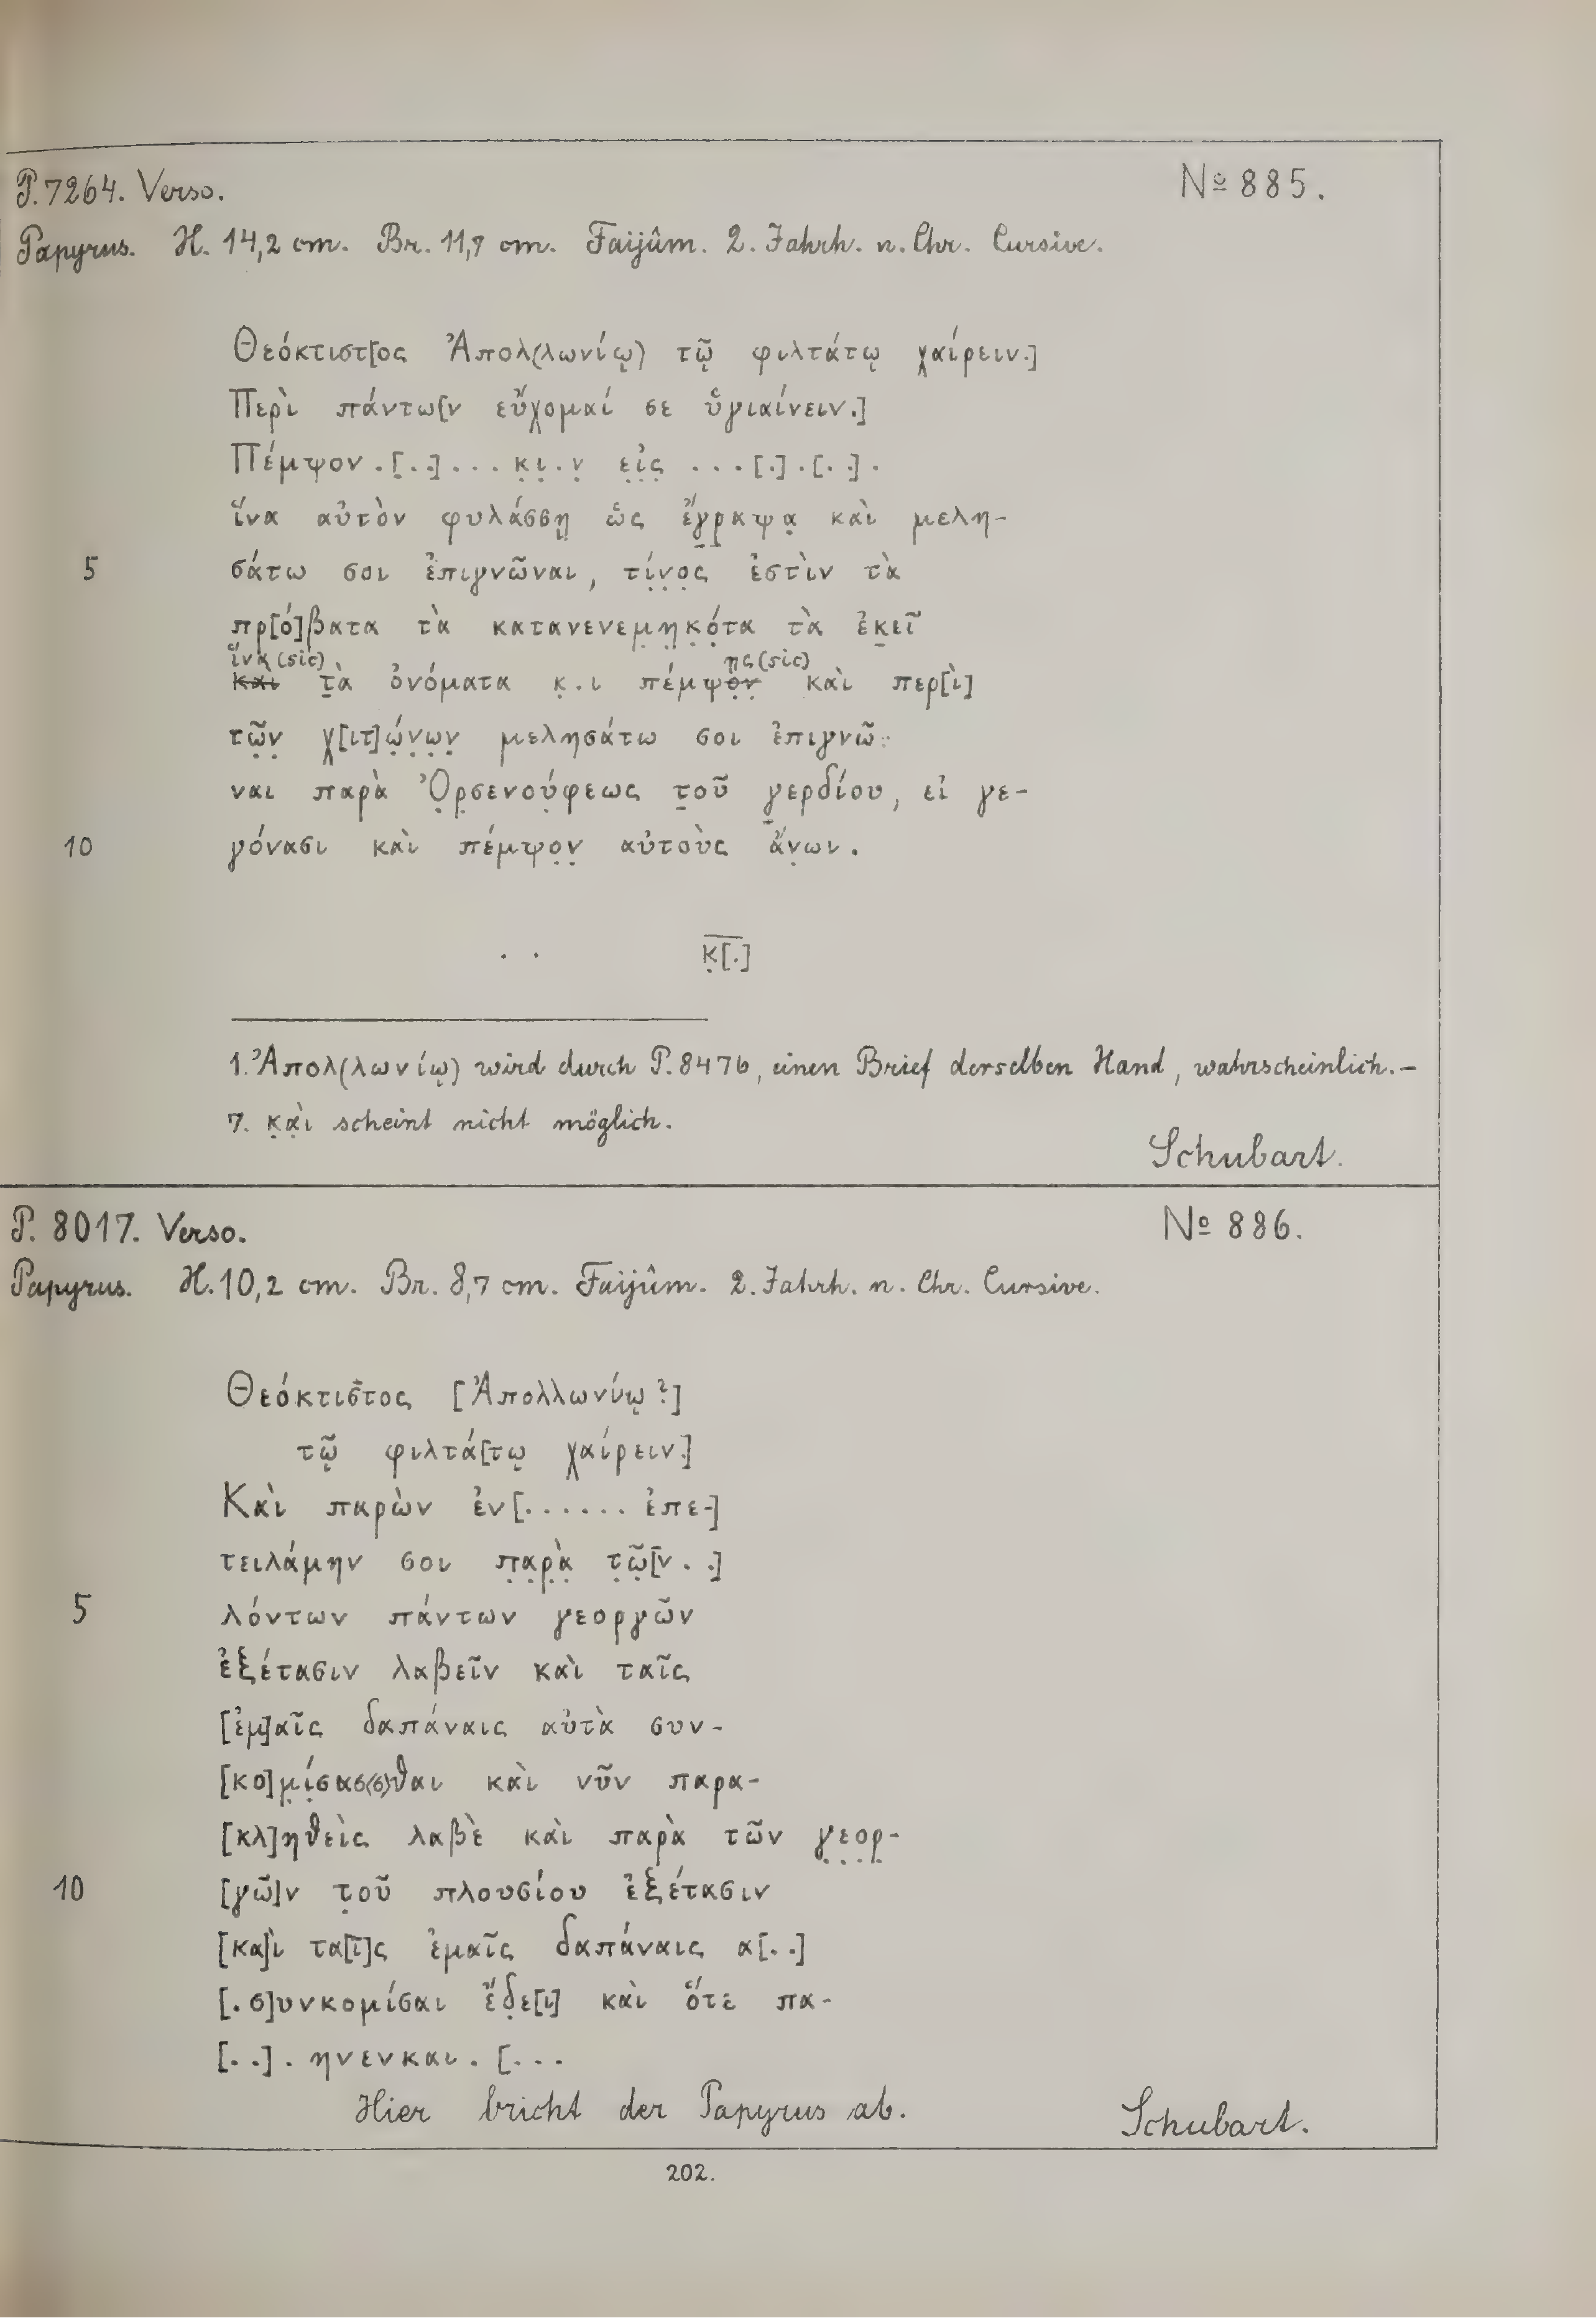 P. 7264. Verso.
№ 885.
Papyrus. H. 14,2 cm. Br. 11,7 cm. Faijûm. 2. Jahrh. n. Chr. Cursive.
Θεόκτιστ[ος Ἀπολ(λωνίῳ) τῷ φιλτάτῳ χαίρειν.]
Περὶ πάντω[ν εὔχομαί σε ὑγιαίνειν.]
Πέμψον .[..]... κ̣ι̣.ν̣ ε̣ἰ̣ς̣ ...[.].[..].
ἵνα αὐτὸν φυλάσσῃ ὡς ἔγ̣ρ̣αψα̣ καὶ μελη-
5 σάτω σοι ἐπιγνῶναι, τί̣ν̣ο̣ς ἐστὶν τὰ
πρ[ό]βατα τὰ κατανενεμ̣η̣κ̣ό̣τα τὰ ἐκ̣εῖ
ἵνα (sic) ης (sic)
καὶ τ̣ὰ ὀνόματα κ̣.ι πέμψο̣ν̣ καὶ περ[ὶ]
τῶ̣ν̣ χ[ιτ]ώ̣ν̣ω̣ν̣ μελησάτω σοι ἐπιγνῶ-
ναι παρὰ Ὀ̣ρ̣σενού̣φεως τ̣οῦ γ̣ερδίου, εἰ γε-
10 γόνασι καὶ πέμψο̣ν̣ αὐτοὺς ἄν̣ωι.
. . κ̣[.]
1. Ἀπολ(λωνίῳ) wird durch P. 8476, einen Brief derselben Hand, wahrscheinlich. –
7. κ̣α̣ὶ scheint nicht möglich.
Schubart.
P. 8017. Verso.
№ 886.
Papyrus. H. 10,2 cm. Br. 8,7 cm. Faijûm. 2. Jahrh. n. Chr. Cursive.
Θεόκτιστος [Ἀπολλωνίῳ?]
τῷ φιλτά[τῳ χαίρειν.]
Καὶ παρὼν ἐν[...... ἐπε-]
τειλάμην σοι π̣α̣ρ̣ὰ̣ τ̣ῶ̣[ν ..]
5 λόντων πάντων γεοργῶν
ἐξέτασιν λαβεῖν καὶ ταῖς
[ἐμ]αῖς δαπάναις αὐτὰ συν-
[κο]μ̣ί̣σασ(σ)θαι καὶ νῦν παρα-
[κλ]ηθεὶς λαβὲ καὶ παρὰ τῶν γ̣ε̣ο̣ρ̣-
10 [γῶ]ν τ̣οῦ πλουσίου ἐξέτασιν
[κα]ὶ τα[ῖ]ς ἐμαῖς δαπάναις α[..]
[.σ]υνκομίσαι ἔδ̣ε[ι] καὶ ὅτε πα-
[..].ηνενκαι.[...
Hier bricht der Papyrus ab.
Schubart.
202.